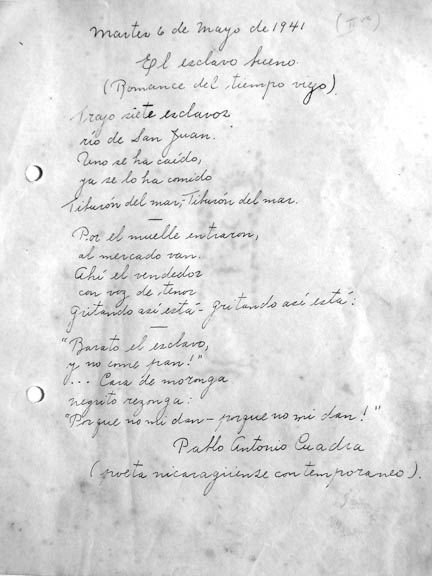 Martes 6 de Mayo de 1941
El esclavo bueno.
(Romance del tiempo viejo).
Trajo siete esclavos
río de San Juan.
Uno se ha caído,
ya se lo ha comido
Tiburón del mar, Tiburón del mar.
Por el muelle entraron,
al mercado van.
Ahí el vendedor
con voz de tenor
gritando así está - gritando así está:
"Barato el esclavo,
y no come pan!"
... Cara de moronga
negrito rezonga:
"Porque no mi dan - porque no mi dan!"
Pablo Antonio Cuadra
(poeta nicaragüense contemporaneo).